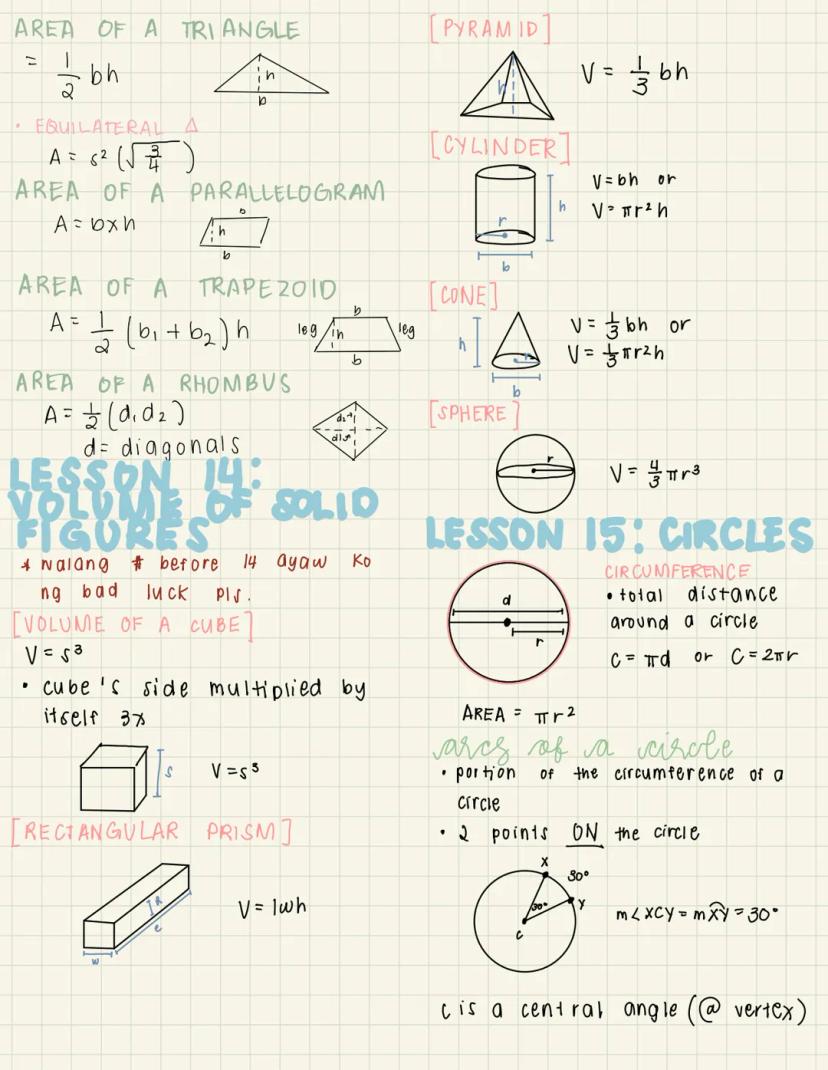 AREA OF A TRIANGLE
= 1/2 bh
h
b
• EQUILATERAL Δ
A = s² (√3/4)
AREA OF A PARALLELOGRAM
A = bxh
b
h
b
AREA OF A TRAPEZOID
A = 1/2 (b₁ + b₂) h
b
leg h leg
b
AREA OF A RHOMBUS
A = 1/2 (d₁d₂)
d = diagonals
LESSON 14:
VOLUME OF SOLID
FIGURES
* walang # before 14 ayaw ko
ng bad luck pls.
[VOLUME OF A CUBE]
V = s³
• cube's side multiplied by
itself 3x
s
V = s³
[RECTANGULAR PRISM]
V = lwh
w
[PYRAMID]
h
V = 1/3 bh
[CYLINDER]
V = bh or
V = πr²h
r
h
b
[CONE]
V = 1/3 bh or
V = 1/3 πr²h
h
r
b
[SPHERE]
r
V = 4/3 πr³
LESSON 15: CIRCLES
CIRCUMFERENCE
• total distance
around a circle
C = πd or C = 2πr
d
r
AREA = πr²
arcs of a circle
• portion of the circumference of a
circle
• 2 points ON the circle
X
30°
30°
Y
C
m∠XCY = mX͡Y = 30°
C is a central angle (@ vertex)